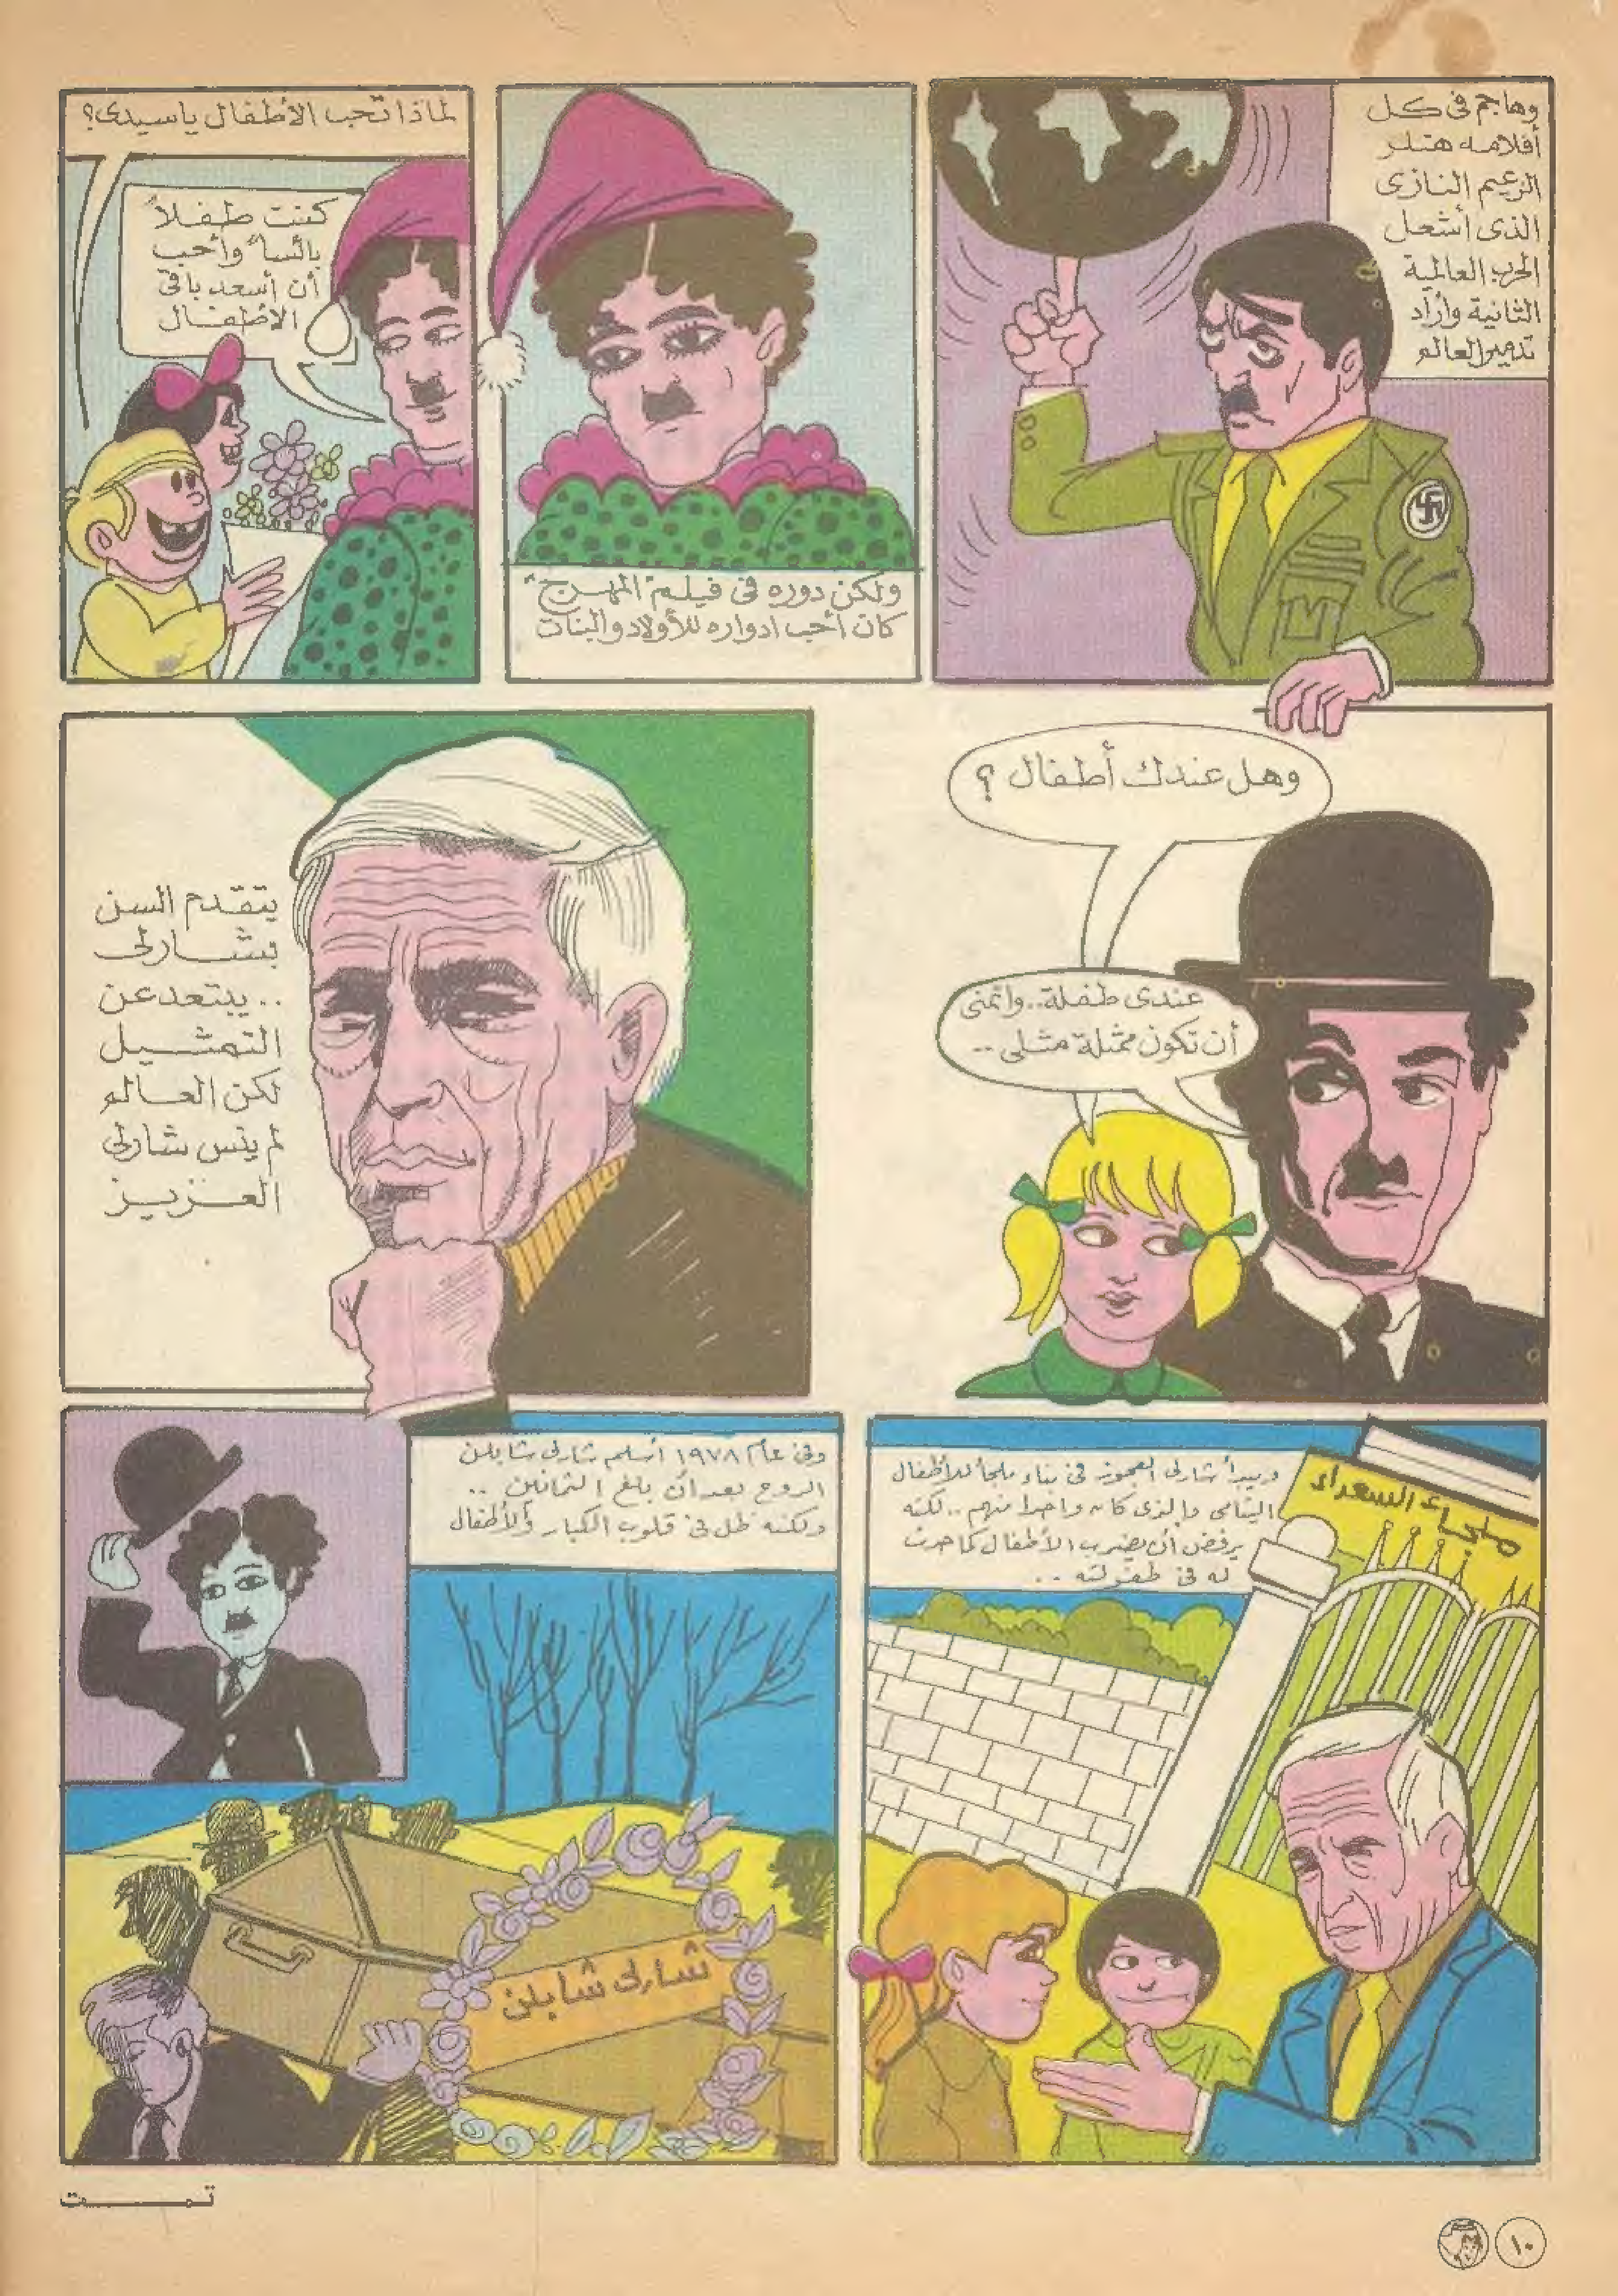 وهاجم فى كل
أفلامه هتلر
الزعيم النازى
الذى أشعل
الحرب العالمية
الثانية وأراد
تدمير العالم
ولكن دوره فى فيلم "المهرج"
كان أحب ادواره للأولاد والبنات
لماذا تحب الأطفال ياسيدى؟
كنت طفلاً
بائساً وأحب
أن أسعد باقى
الأطفال
وهل عندك أطفال ؟
عندى طفلة.. واتمنى
أن تكون ممثلة مثلى ..
يتقدم السن
بشارلى
.. يبتعد عن
التمثيل
لكن العالم
لم ينس شارلى
العزيز
ويبدأ شارلى العجوز فى بناء ملجأ للأطفال
اليتامى والذى كان واحدا منهم .. لكنه
يرفض أن يضرب الأطفال كما حدث
له فى طفولته ..
ملجاء السعداء
وفى عام ١٩٧٨ أسلم شارلى شابلن
الروح بعد أن بلغ الثمانين ..
ولكنه ظل فى قلوب الكبار والأطفال
شارلى شابلن
تمت
١٠